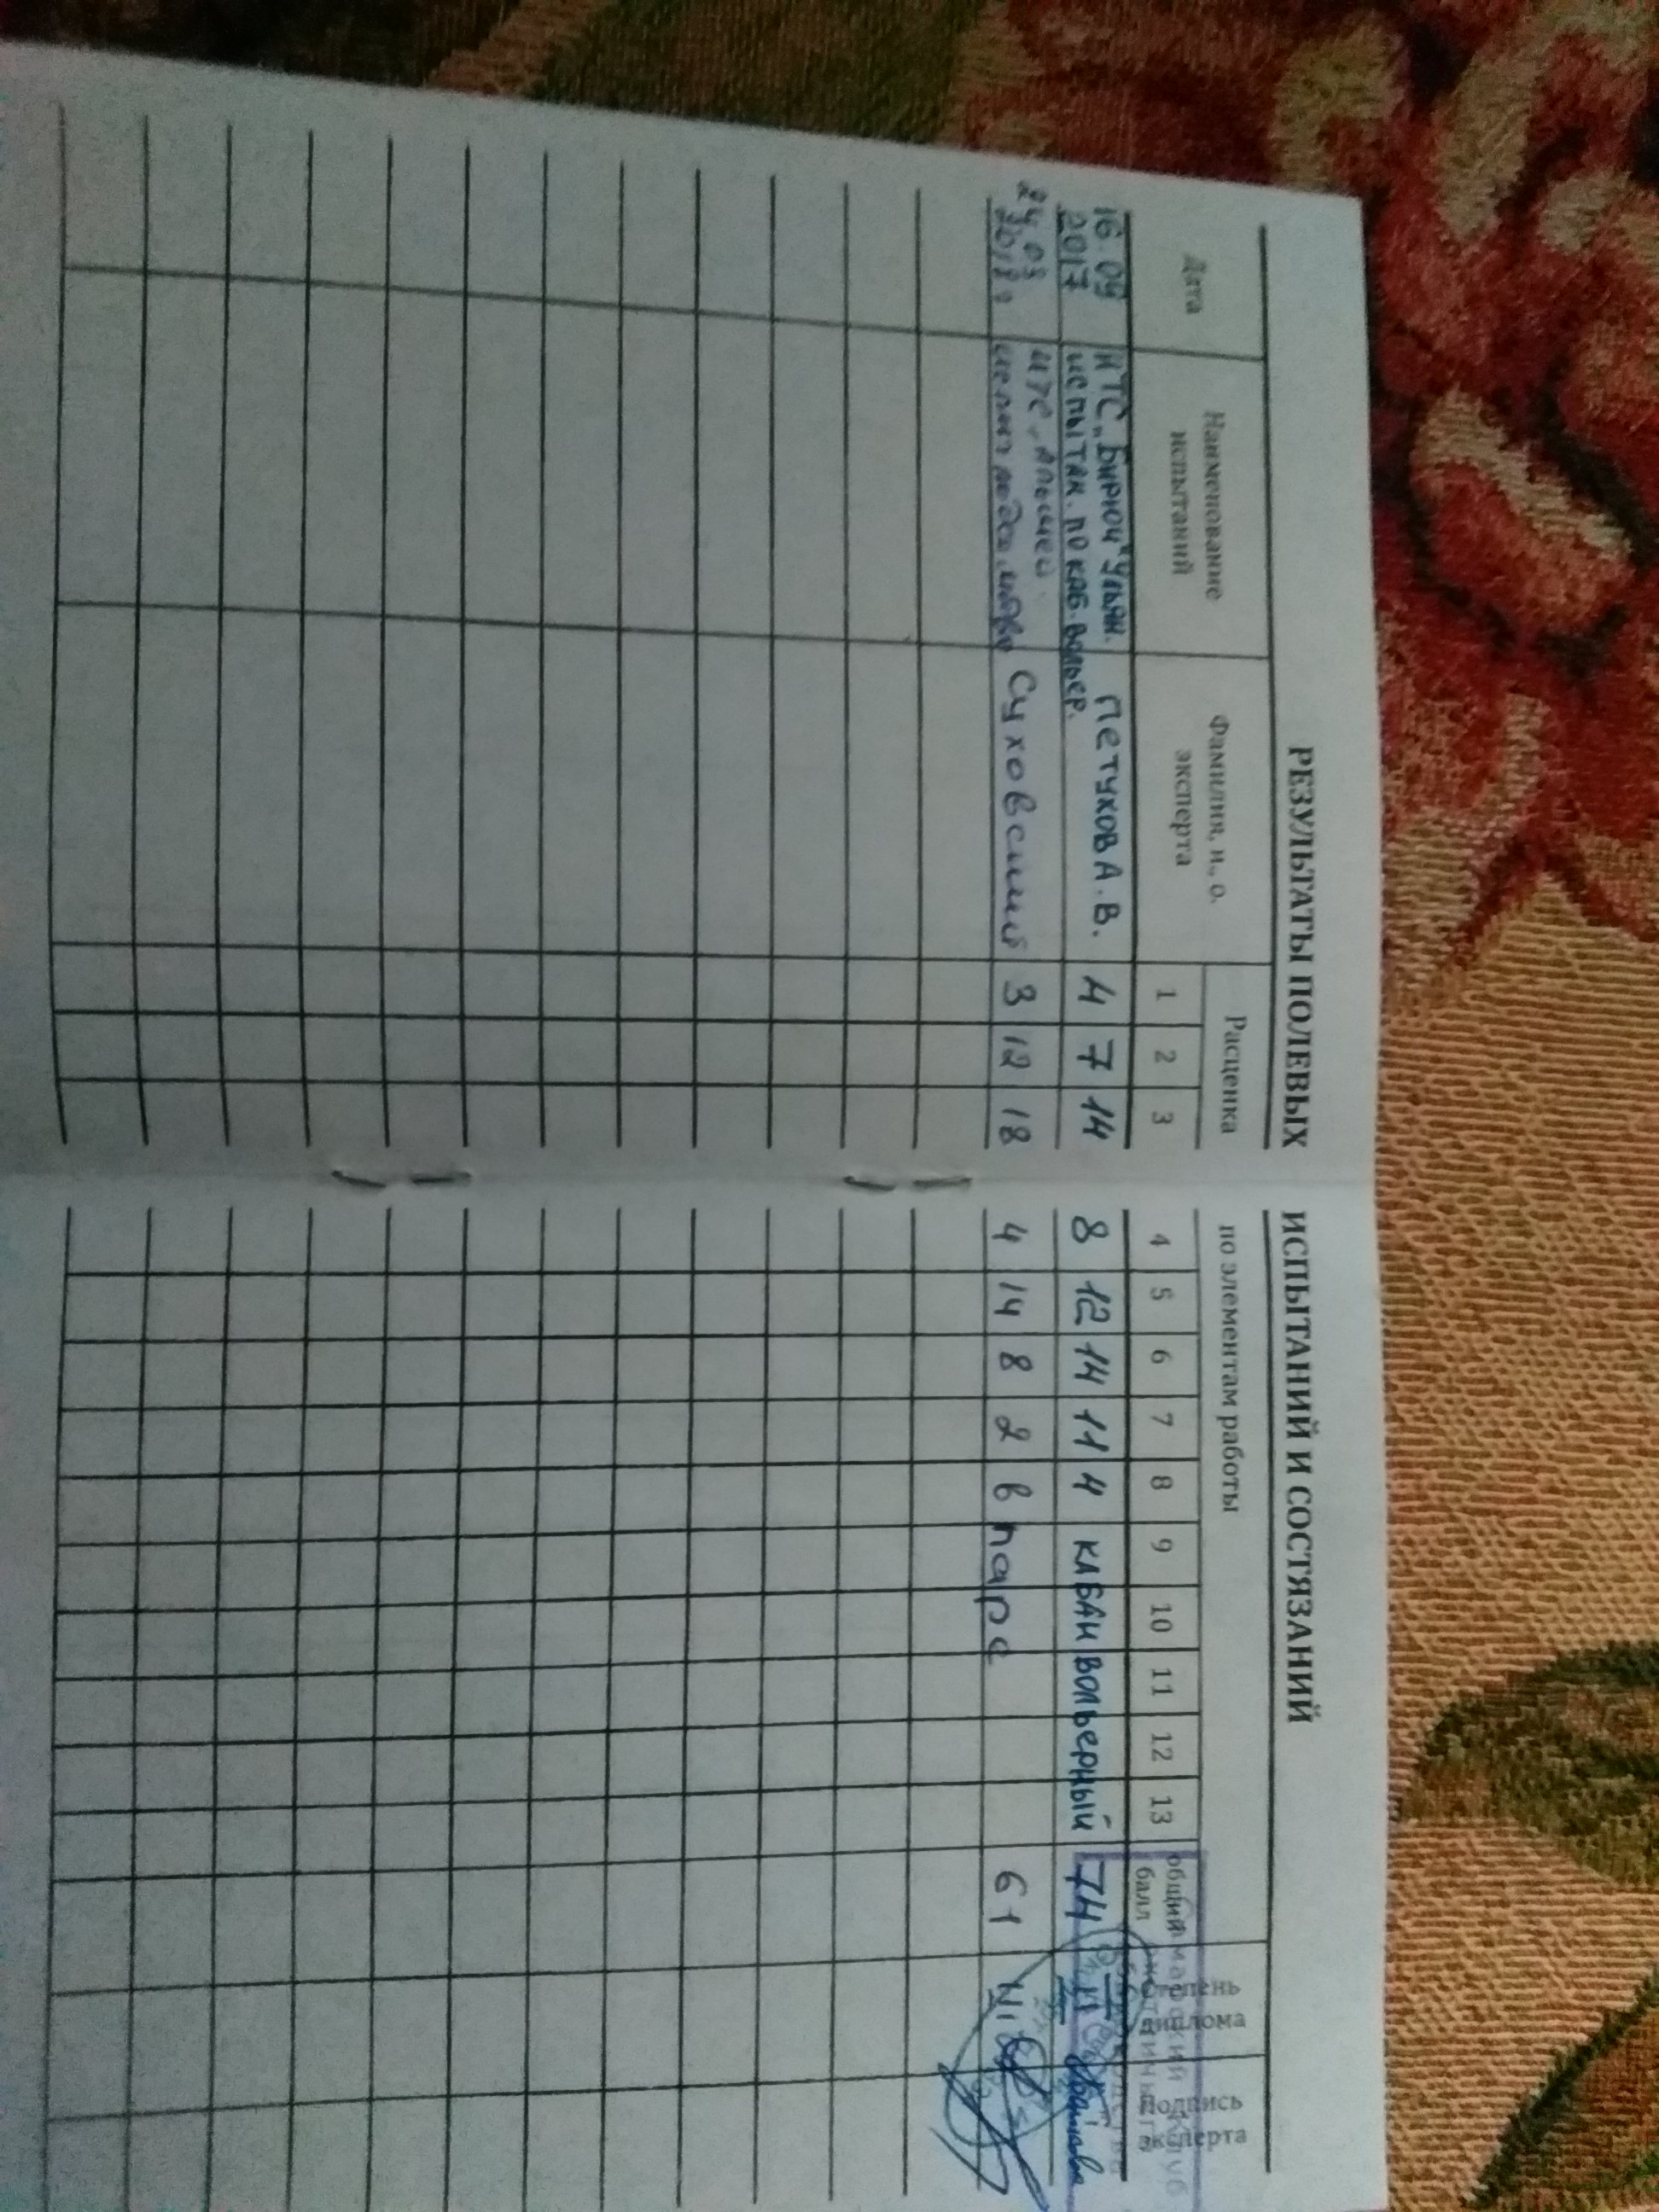 РЕЗУЛЬТАТЫ ПОЛЕВЫХ ИСПЫТАНИЙ И СОСТЯЗАНИЙ
Дата Наименование испытаний Фамилия, и., о. эксперта Расценка по элементам работы Степень диплома Подпись эксперта
1 2 3 4 5 6 7 8 9 10 11 12 13 общий балл
16.09 ИТС „Бирюч" Ульян. Петухов А.В. 4 7 14 8 12 14 11 4 КАБАН ВОЛЬЕРНЫЙ 74 III
2017 испытан. по каб. вольер.
24.03 ИТС Суховский 3 12 18 4 14 8 2 в паре 61 III
2018г